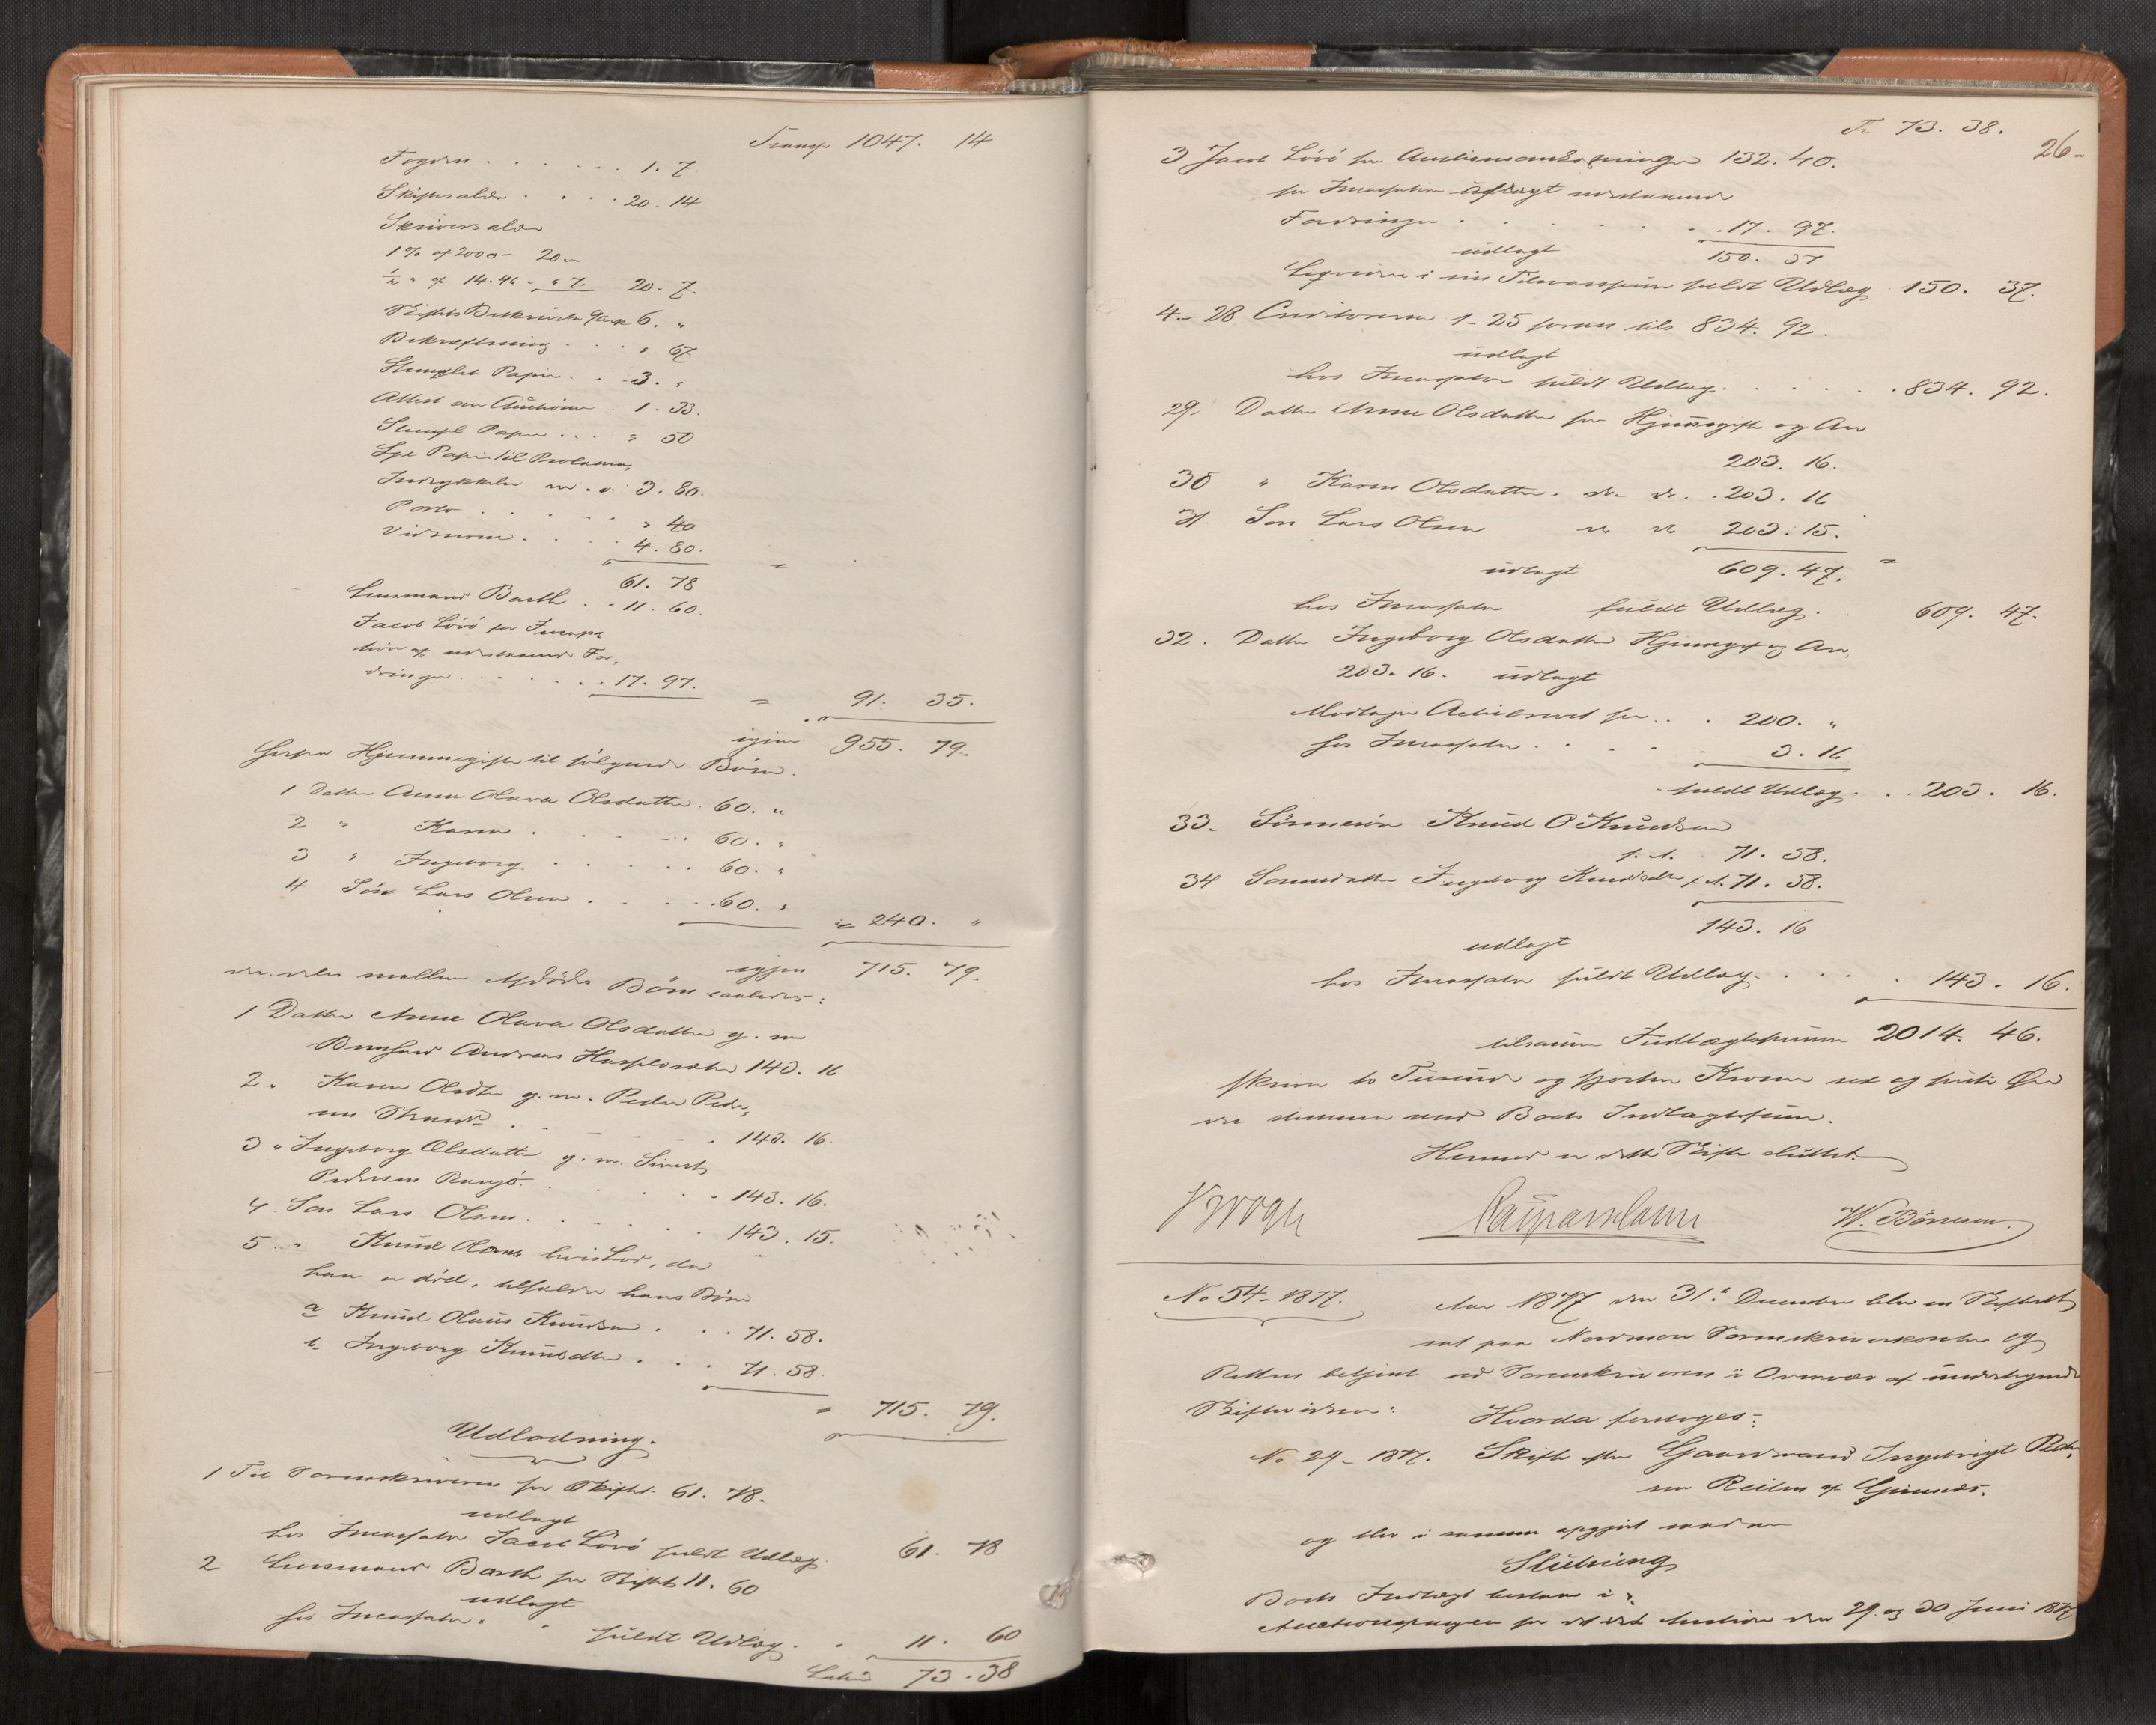 Transp 1047. 14
Fogden . . . . . . 1. 7.
Skiftesalær . . . . 20. 14
Skriversalær
1 % af 2000 - 20 "
½ " af 14.46 - " 7. 20. 7.
6. "
Bekræftning . . . " 67
Stemplet Papir . . 3. "
Attest om Auctionen . 1. 33.
Stempl Papir . . . " 50
Spl Papir til Proclama,
Indrykkelse m. v. 3. 80.
Porto . . . . . " 40
Vidnerne . . . . 4. 80.
61. 78
Lensmand Barth . . 11. 60.
Jacob Lövö for Incassa
tion af udestaaende For,
dringer . . . . . . 17. 97. = 91. 35.
igjen 955. 79.
Hjemmegifte til følgende Børn.
1 Datter Anne Olava Olsdatter . 60. "
2 " Karen . . . . . 60. "
3 " Ingeborg . . . . . 60. "
4 Søn Lars Olsen . . . . 60. " = 240. "
igjen 715. 79.
der deles mellem Afdødes Børn saaledes:
1 Datter Anne Olava Olsdatter g. m
Andreas 143. 16
2 " Karen Olsdtr g. m. Peder Peder,
sen Strand . . . . . . 143. 16.
3 " Ingeborg Olsdatter g. m. Sivert
Pedersen . . . . . 143. 16.
4 Søn Lars Olsen . . . . . 143. 15.
5 " Knud Olsens hvis Lod, da
han er død, tilfalder hans Børn
a Knud Olaus Knudsen . . . 71. 58.
b Ingeborg Knudsdtr . . . 71. 58.
= 715. 79.
Udlodning.
1 Til Sorenskriveren for Skiftet 61. 78.
udlagt
hos Incassator Jacob Lövö fuldt Udlæg. 61. 78
2 Lensmand Barth for Skiftet 11. 60
udlagt
hos Incassator . . fuldt Udlæg . . 11. 60
Latus 73. 38
Tr 73. 38.
26-
3 Jacob Lövö for Auctionsomkostninger 132. 40.
for Incassation af udlagt udestaaende
Fordringer . . . . . . 17. 97.
udlagt 150. 37
Ligesaa i sin fuldt Udlæg 150. 37.
4 - 28 Creditorerne 1-25 foran tils 834. 92.
udlagt
hos Incassator fuldt Udlæg . . . . . . 834. 92.
29. Datter Anne Olsdatter for Hjemmegifte og Arv
203. 16.
30 " Karen Olsdatter . do. do. . 203. 16
31 Søn Lars Olsen do do 203. 15.
udlagt 609. 47.
hos Incassator fuldt Udlæg . . 609. 47.
32. Datter Ingeborg Olsdatter Hjemmegift og Arv,
203. 16. udlagt
Modtagne for . . 200. "
hos Incassator . . . . . 3. 16
fuldt Udlæg . . . 203. 16.
33. Sønnesøn Knud O Knudsen
f. A. 71. 58.
34 Sønnedatter Ingeborg Knudsdtr f. A. 71. 58.
143. 16
udlagt
hos Incassator fuldt Udlæg . . . . . 143. 16.
tilsammen Indtægtssummen 2014. 46.
skriver to Tusinde og fjorten Kroner sex og firti Øre
der stemmer med Boets Indtægtssum.
Hermed er dette Skifte sluttet.
W. Börresen.
No 54 - 1877. Aar 1877 den 31te December blev en Skifteret
sat paa Nordmøre Sorenskriverkontor og
Retten betjent ved Sorenskriveren i Overvær af undertegnede
Skiftevidner: Hvorda foretoges:
No 29 - 1877. Skifte efter Gaardmand Ingebrigt Peder,
sen Reiten af Gimnæs.
og blev i samme opgjort saadan
Slutning
Boets Indtægt bestaar i:
Auctionspengene for det ved Auction den 29. og 30 Juni 1877